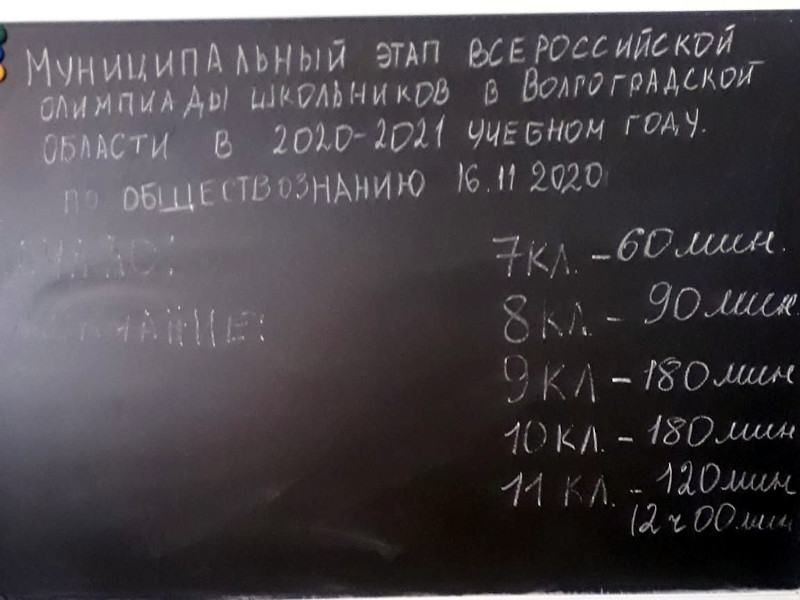 МУНИЦИПАЛЬНЫЙ ЭТАП ВСЕРОССИЙСКОЙ
ОЛИМПИАДЫ ШКОЛЬНИКОВ В ВОЛГОГРАДСКОЙ
ОБЛАСТИ В 2020-2021 УЧЕБНОМ ГОДУ.
ПО ОБЩЕСТВОЗНАНИЮ 16.11 2020
7 КЛ. – 60 мин.
8 КЛ. – 90 мин.
9 КЛ – 180 мин
10 КЛ. – 180 мин
11 КЛ. – 120 мин
(2 ч 00 мин